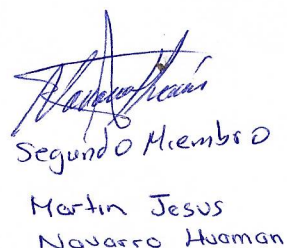 Segundo Miembro
Martin Jesus
Navarro Huaman